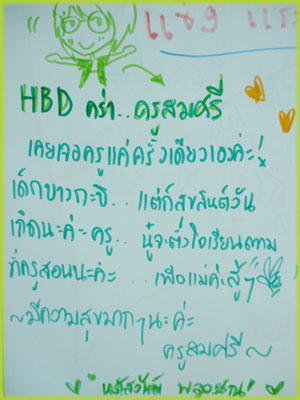 HBD คร่า.. ครูสมศรี
เคยเจอครูแค่ครั้งเดียวเองค่ะ!
เด็กบางกะปิ... แต่ก็สุขสันต์วัน
เกิดนะค่ะครู... นู๋จะตั้งใจเรียนตาม
ที่ครูสอนนะค่ะ ... เพื่อแม่ค่ะสู้ๆ
~มีความสุขมากๆนะค่ะ
ครูสมศรี~